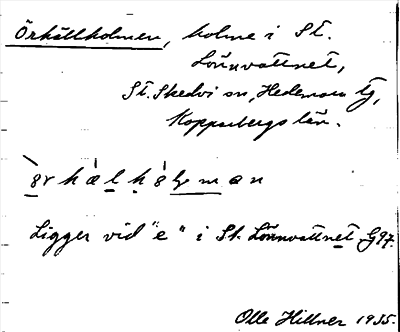 Örhällholmen, holme i St.
Lönnvattnet,
St. Skedvi sn, Hedemora tg,
Kopparbergs län.
Ligger vid "e" i St. Lönnvattnet G97.
Olle Hillner 1935.